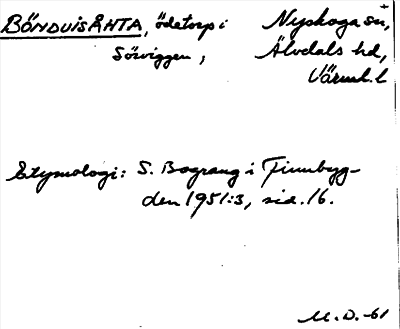 BÖNDUISÅHTA, ödetorp i Nyskoga sn,
Sörviggen, Älvdals hd,
Värml. l
Etymologi: S. Bograng i Finnbyg-
den 1951:3, sid. 16.
M. O. -61